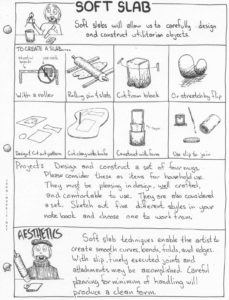 SOFT SLAB
Soft slabs will allow us to carefully design
and construct utilitarian objects.
TO CREATE A SLAB...
With a roller
Rolling pin & slats
Cut from block
Or stretch by flip
Design & cut out pattern
Cut clay with knife
Construct with form
Use slip to join
Project: Design and construct a set of four mugs.
Please consider these as items for household use.
They must be pleasing in design, well crafted,
and comfortable to use. They are also considered
a set. Sketch out five different styles in your
note book and choose one to work from.
AESTHETICS
Soft slab techniques enable the artist to
create smooth curves, bends, folds, and edges.
With slip, finely executed joints and
attachments may be accomplished. Careful
planning for minimum of handling will
produce a clean form.